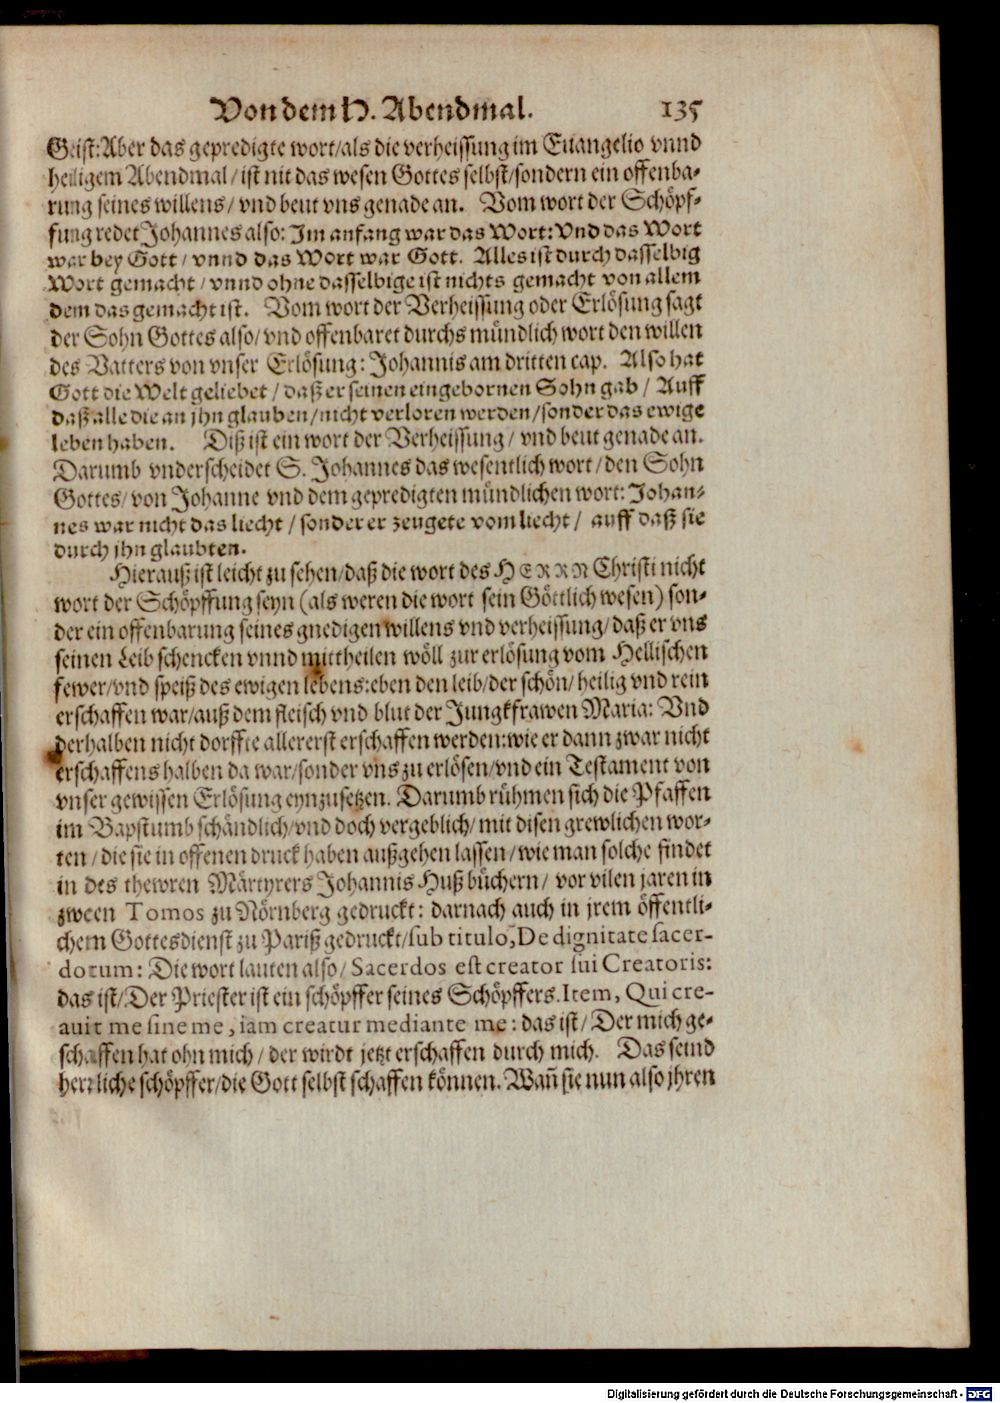 Von dem H. Abendmal. 135
Geist: Aber das gepredigte wort/als die verheissung im Euangelio vnnd
heiligem Abendmal/ ist nit das wesen Gottes selbst/sondern ein offenba-
rung seines willens/ vnd beut vns genade an. Vom wort der Schöpf-
fung redet Johannes also: Im anfang war das Wort: Vnd das Wort
war bey Gott/ vnnd das Wort war Gott. Alles ist durch dasselbig
Wort gemacht/ vnnd ohne dasselbige ist nichts gemacht von allem
dem das gemacht ist. Vom wort der Verheissung oder Erlösung sagt
der Sohn Gottes also/ vnd offenbaret durchs mündlich wort den willen
des Vatters von vnser Erlösung: Johannis am dritten cap. Also hat
Gott die Welt geliebet/ daß er seinen eingebornen Sohn gab/ Auff
daß alle die an jhn glauben/nicht verloren werden/sonder das ewige
leben haben. Diß ist ein wort der Verheissung/ vnd beut genade an.
Darumb vnderscheidet S. Johannes das wesentlich wort/den Sohn
Gottes/ von Johanne vnd dem gepredigten mündlichen wort: Johan-
nes war nicht das liecht/ sonder er zeugete vom liecht/ auff daß sie
durch jhn glaubten.
Hierauß ist leicht zu sehen/daß die wort des HERRN Christi nicht
wort der Schöpffung seyn (als weren die wort sein Göttlich wesen) son-
der ein offenbarung seines gnedigen willens vnd verheissung/daß er vns
seinen Leib schencken vnnd mittheilen wöll zur erlösung vom Hellischen
fewer/vnd speiß des ewigen lebens: eben den leib/der schön/ heilig vnd rein
erschaffen war/auß dem fleisch vnd blut der Jungkfrawen Maria: Vnd
derhalben nicht dorffte allererst erschaffen werden: wie er dann zwar nicht
erschaffens halben da war/sonder vns zu erlösen/vnd ein Testament von
vnser gewissen Erlösung eynzusetzen. Darumb rühmen sich die Pfaffen
im Bapstumb schändlich/vnd doch vergeblich/ mit disen grewlichen wor-
ten/ die sie in offenen druck haben außgehen lassen/ wie man solche findet
in des thewren Märtyrers Johannis Huß büchern/ vor vilen jaren in
zween Tomos zu Nörnberg gedruckt: darnach auch in jrem öffentli-
chem Gottesdienst zu Pariß gedruckt/sub titulo, De dignitate sacer-
dotum: Die wort lauten also/ Sacerdos est creator sui Creatoris:
das ist/Der Priester ist ein schöpffer seines Schöpffers. Item, Qui cre-
auit me sine me, iam creatur mediante me: das ist/ Der mich ge-
schaffen hat ohn mich/ der wirdt jetzt erschaffen durch mich. Das seind
herrliche schöpffer/die Gott selbst schaffen können. Wañ sie nun also jhren
Digitalisierung gefördert durch die Deutsche Forschungsgemeinschaft - DFG